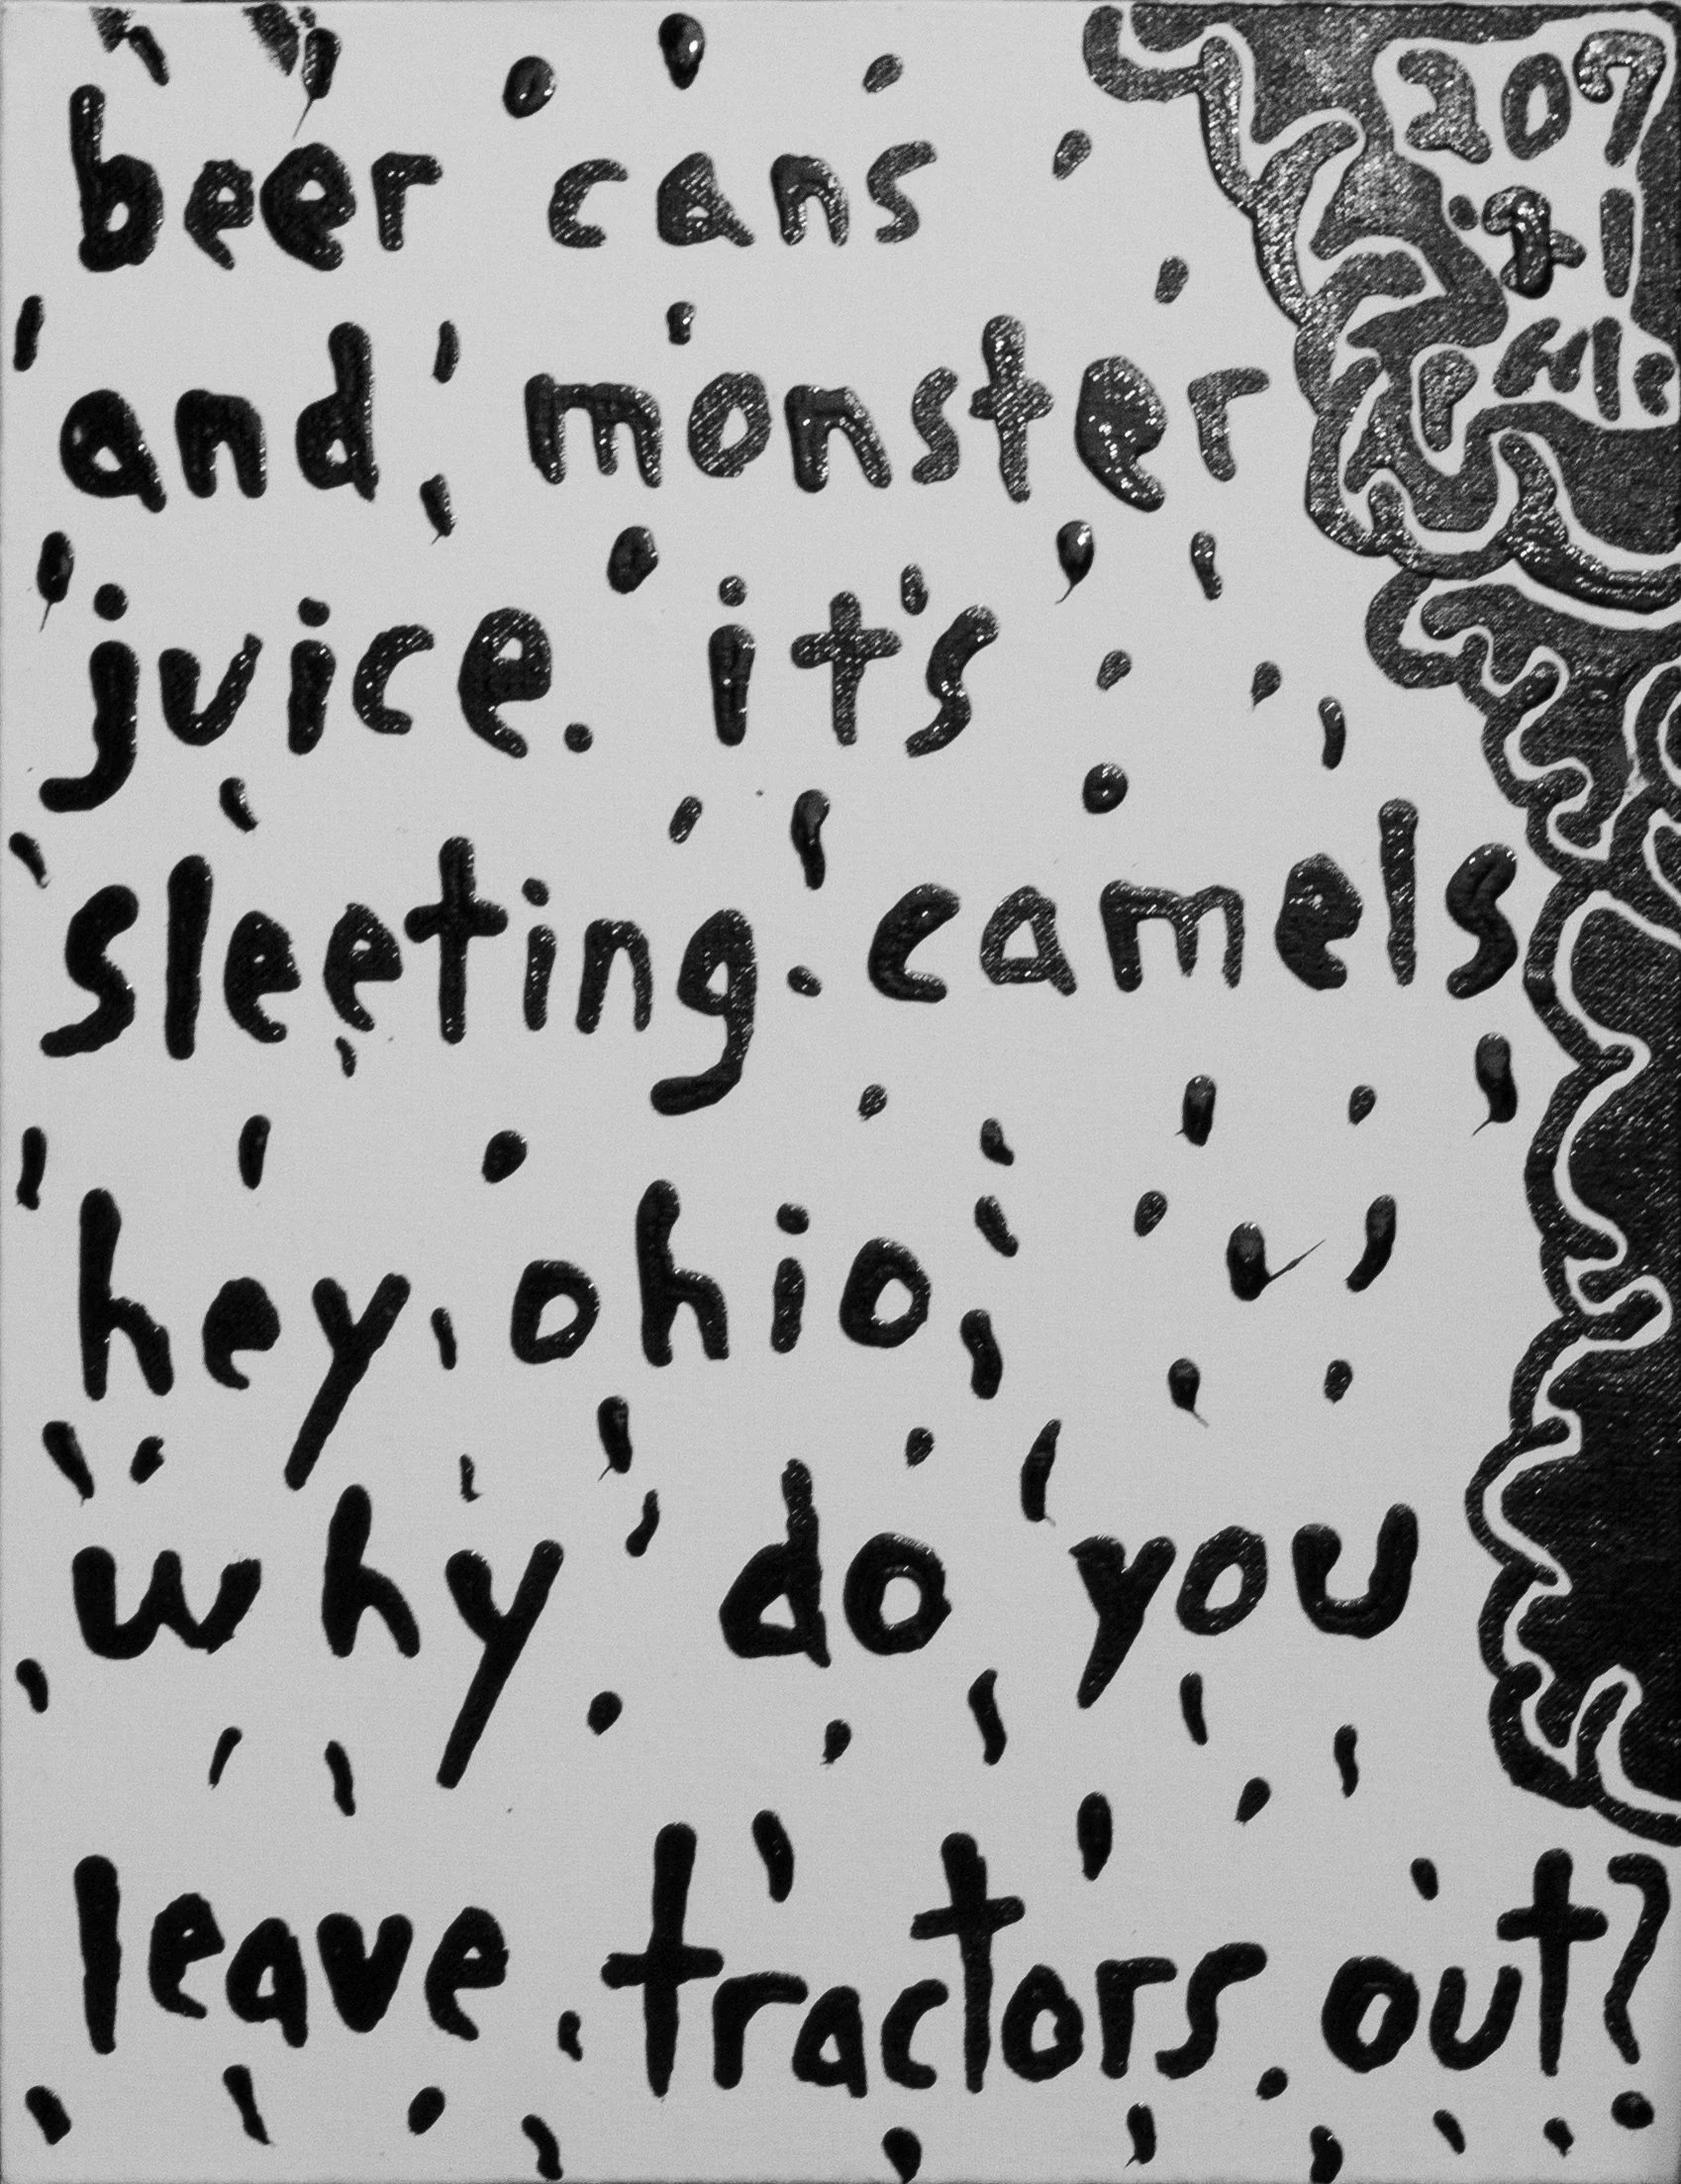 beer cans
and monster
juice. it's
sleeting. camels
hey ohio,
why do you
leave tractors out?
207